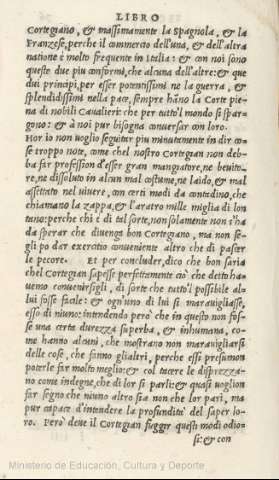 LIBRO
Cortegiano, & massimamente la Spagnola, & la
Franzese, perche il commercio dell'una, & dell'altra
natione è molto frequente in Italia: & con noi sono
queste due piu conformi, che alcuna dell'altre: & que
dui principi, per esser potentissimi ne la guerra, &
splendidissimi nella pace, sempre hãno la Corte pie
na di nobili Cavalieri: che per tutto'l mondo si spar
gono: & à noi pur bisogna conversar con loro.
Hor io non voglio seguitar piu minutamente in dir co
se troppo note, come chel nostro Cortegian non deb-
ba far profession d'esser gran mangiatore, ne bevito-
re, ne dissoluto in alcun mal costume, ne laido, & mal
assettato nel vivere, con certi modi da contadino, che
chiamano la zappa, & l'aratro mille miglia di lon
tano: perche chi è di tal sorte, non solamente non s'ha
da sperar che divenga bon Cortegiano, ma non se
gli po dar exercitio conveniente altro che di pascer
le pecore. Et per concluder, dico che bon saria
chel Cortegian sapesse perfettamente ciò che detto ha
vemo convenirsigli, di sorte che tutto'l possibile a
lui fosse facile: & ogn'uno di lui si maravigliasse,
esso di niuno: intendendo però che in questo non fos-
se una certa durezza superba, & inhumana, co-
me hanno alcuni, che mostrano non maravigliarsi
delle cose, che fanno gli altri, perche essi presumon
poterle far molto meglio: & col tacere le disprezza-
no come indegne, che di lor si parli: & quasi voglion
far segno che niuno altro sia non che lor pari, ma
pur capace d'intendere la profundità del saper lo-
ro. Però deve il Cortegian fuggir questi modi odio
si: & con
Ministerio de Educación, Cultura y Deporte